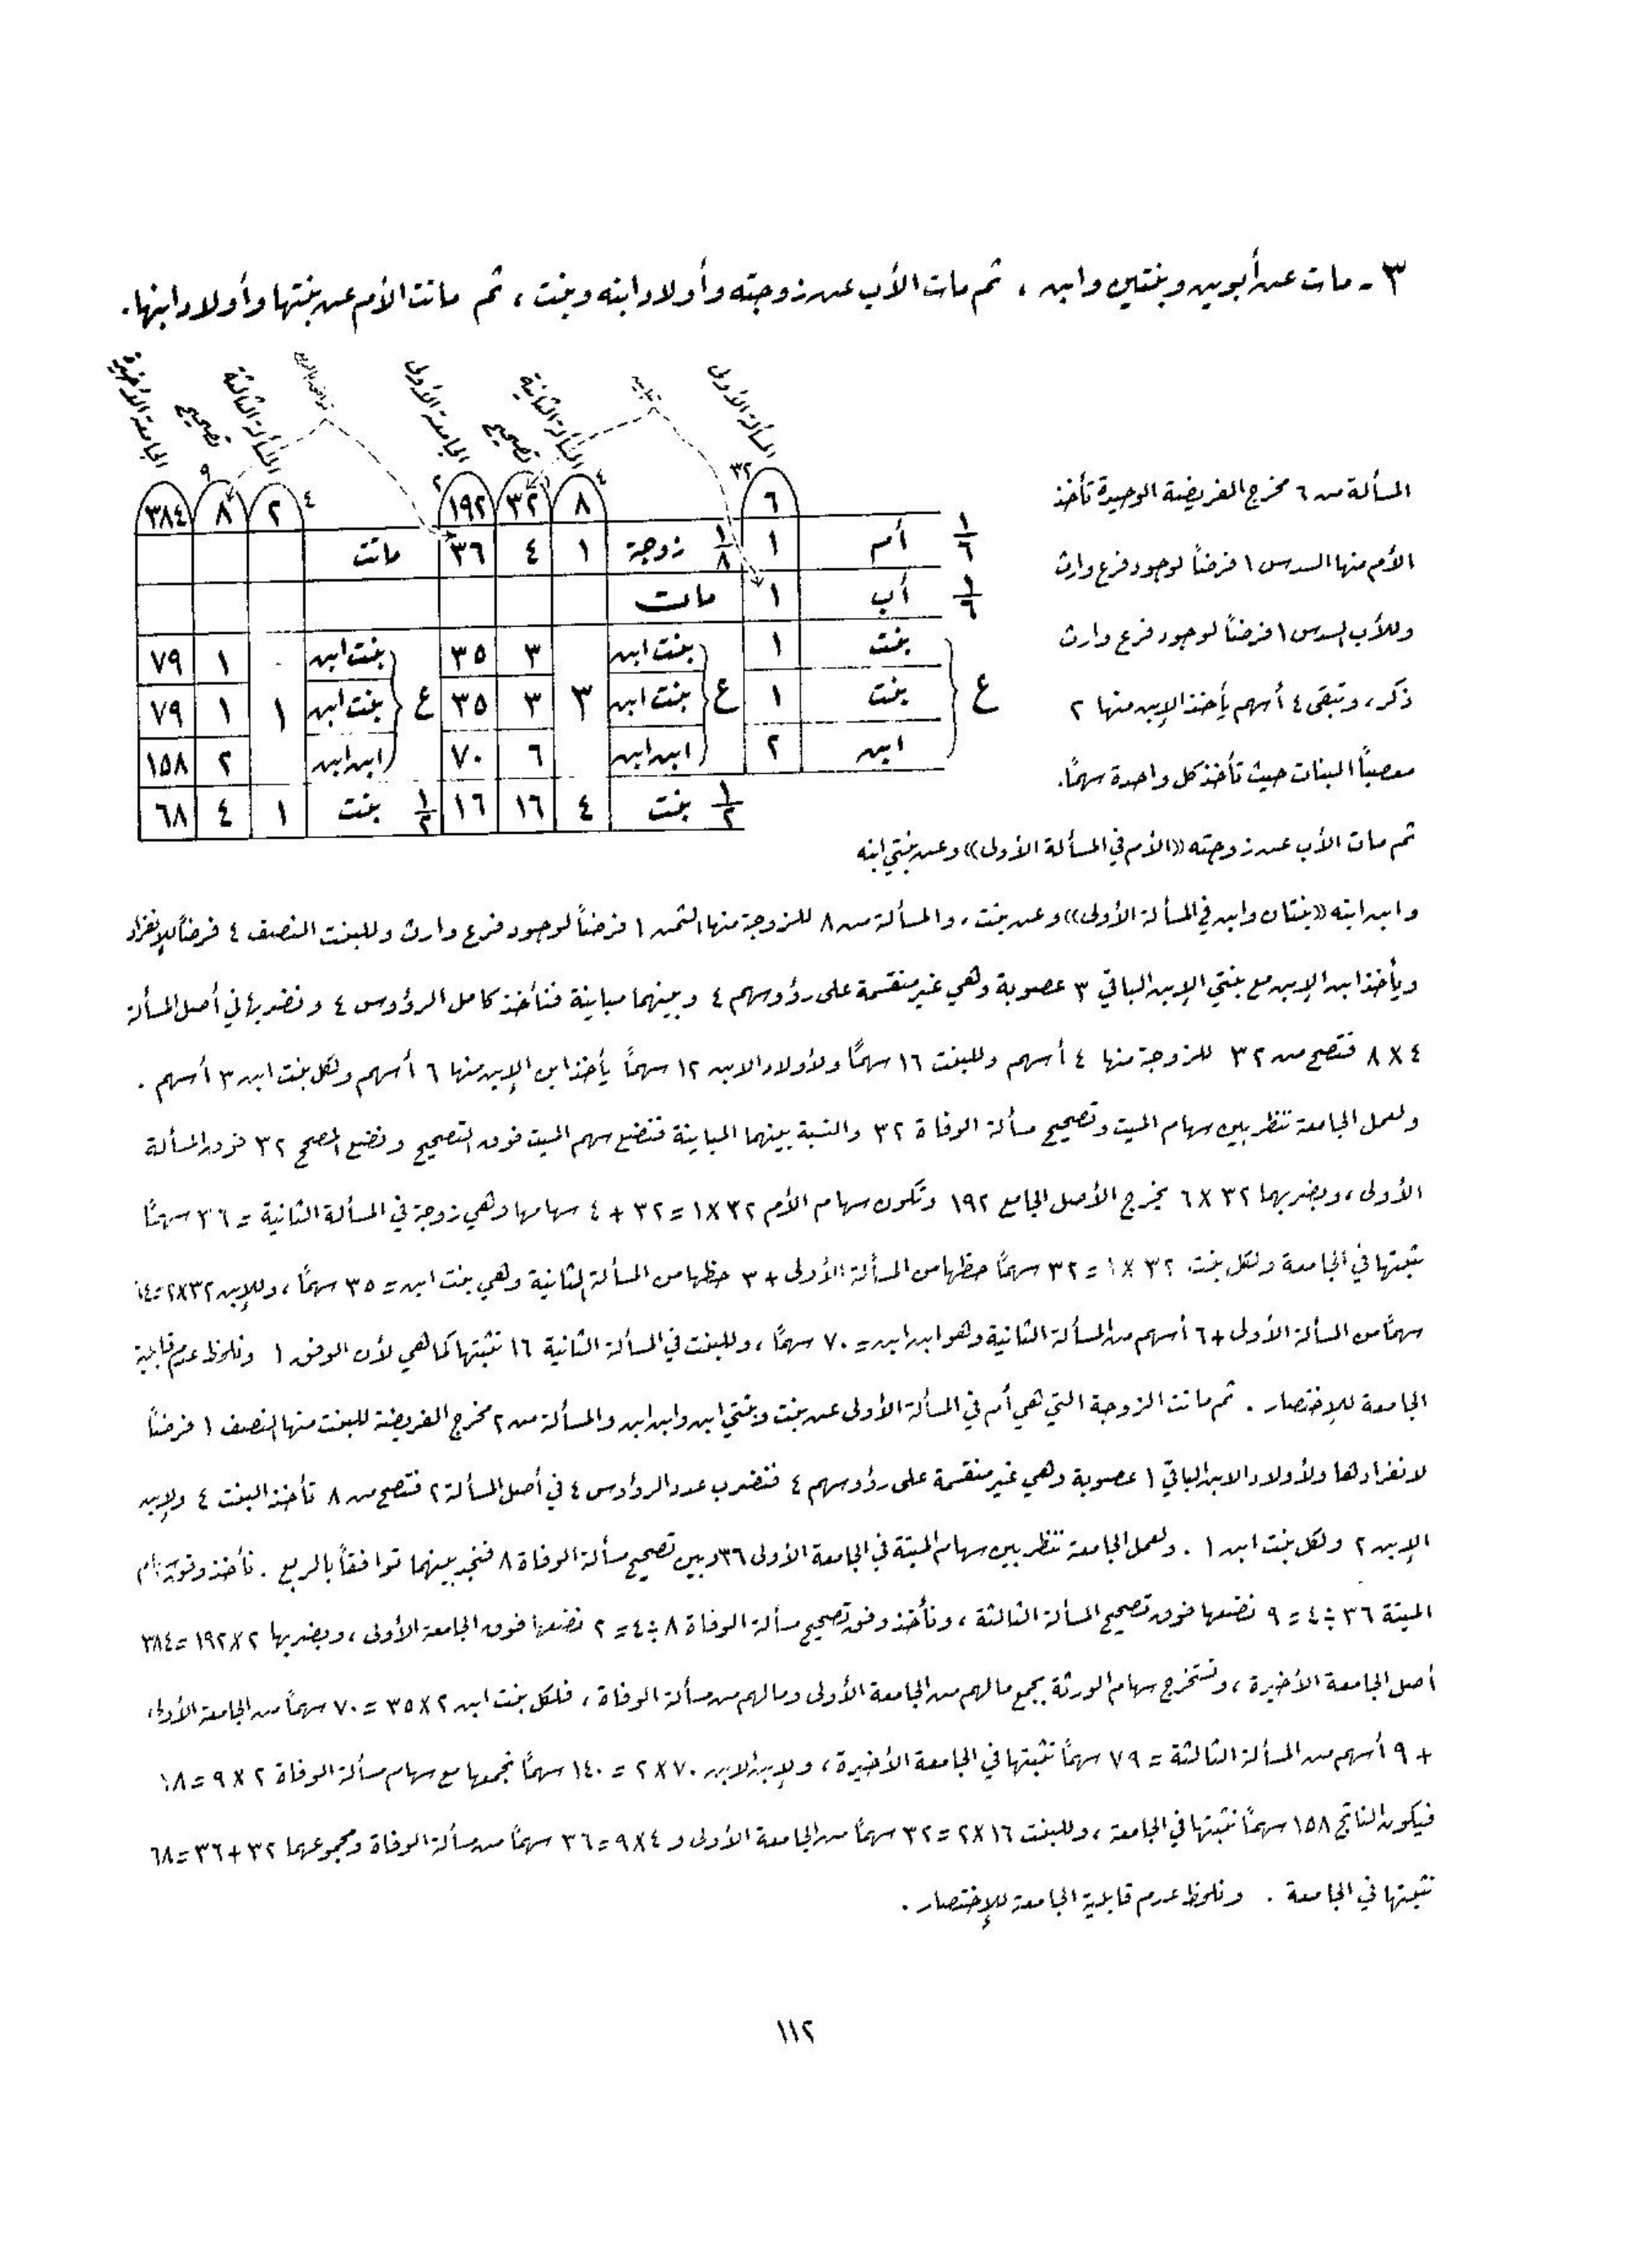 ٣ - مات عن أبوين وبنتين وابن ، ثم مات الأب عن زوجته وأولاد ابنه وبنت ، ثم ماتت الأم عن بنتها وأولاد ابنها .
المسألة الأولى
تباين
المسألة الثانية
تصحيح
الجامعة الأولى
توافق بالربع
المسألة الثالثة
تصحيح
الجامعة الأخيرة
٣٢ ٤ ١ ٢ ٤ ٩
٦ ٨ ٣٢ ١٩٢ ٢ ٨ ٣٨٤
١/٦ أم ١ ١/٨ زوجة ١ ٤ ٣٦ ماتت
١/٦ أب ١ مات
ع بنت ١ ع بنت ابن ٣ ٣ ٣٥ ع بنت ابن ١ ١ ٧٩
بنت ١ بنت ابن ٣ ٣٥ بنت ابن ١ ٧٩
ابن ٢ ابن ابن ٦ ٧٠ ابن ابن ٢ ١٥٨
١/٢ بنت ٤ ١٦ ١٦ ١/٢ بنت ١ ٤ ٦٨
المسألة من ٦ مخرج الفريضة الوحيدة تأخذ
الأم منها السدس ١ فرضاً لوجود فرع وارث
وللأب السدس ١ فرضاً لوجود فرع وارث
ذكر ، وتبقى ٤ أسهم يأخذ الإبن منها ٢
معصباً البنات حيث تأخذ كل واحدة سهماً .
ثم مات الأب عن زوجته ((الأم في المسألة الأولى)) وعن بنتي ابنه
وابن ابنه ((بنتان وابن في المسألة الأولى)) وعن بنت ، والمسألة من ٨ للزوجة منها الثمن ١ فرضاً لوجود فرع وارث وللبنت النصف ٤ فرضاً للإنفراد
ويأخذ ابن الإبن مع بنتي الإبن الباقي ٣ عصوبة وهي غير منقسمة على رؤوسهم ٤ وبينهما مباينة فنأخذ كامل الرؤوس ٤ ونضربها في أصل المسألة
٤ × ٨ فتصح من ٣٢ للزوجة منها ٤ أسهم وللبنت ١٦ سهماً ولأولاد الابن ١٢ سهماً يأخذ ابن الإبن منها ٦ أسهم ولكل بنت ابن ٣ أسهم .
ولعمل الجامعة ننظر بين سهام الميت وتصحيح مسألة الوفاة ٣٢ والنسبة بينهما المباينة فنضع سهم الميت فوق التصحيح ونضع المصحح ٣٢ فوق المسألة
الأولى ، وبضربهما ٣٢ × ٦ يخرج الأصل الجامع ١٩٢ وتكون سهام الأم ٣٢ × ١ = ٣٢ + ٤ سهامها وهي زوجة في المسألة الثانية = ٣٦ سهماً
نثبتها في الجامعة ولكل بنت ٣٢ × ١ = ٣٢ سهماً حظها من المسألة الأولى + ٣ حظها من المسألة الثانية وهي بنت ابن = ٣٥ سهماً ، وللإبن ٣٢ × ٢ =
سهماً من المسألة الأولى + ٦ أسهم من المسألة الثانية وهو ابن ابن = ٧٠ سهماً ، وللبنت في المسألة الثانية ١٦ نثبتها كما هي لأن الوفق ١ ونلحظ عدم قابلية
الجامعة للإختصار . ثم ماتت الزوجة التي هي أم في المسألة الأولى عن بنت وبنتي ابن وابن ابن والمسألة من ٢ مخرج الفريضة للبنت منها النصف ١ فرضاً
لانفرادها ولأولاد الابن الباقي ١ عصوبة وهي غير منقسمة على رؤوسهم ٤ فنضرب عدد الرؤوس ٤ في أصل المسألة ٢ فتصح من ٨ تأخذ البنت ٤ ولإبن
الإبن ٢ ولكل بنت ابن ١ . ولعمل الجامعة ننظر بين سهام الميتة في الجامعة الأولى ٣٦ وبين تصحيح مسألة الوفاة ٨ فنجد بينهما توافقاً بالربع . نأخذ وفق
الميتة ٣٦ ÷ ٤ = ٩ نضعها فوق تصحيح المسألة الثالثة ، ونأخذ وفق تصحيح مسألة الوفاة ٨ ÷ ٤ = ٢ نضعها فوق الجامعة الأولى ، وبضربها ٢ × ١٩٢ = ٣٨٤
أصل الجامعة الأخيرة ، ونستخرج سهام الورثة بجمع مالهم من الجامعة الأولى ومالهم من مسألة الوفاة ، فلكل بنت ابن ٢ × ٣٥ = ٧٠ سهماً من الجامعة الأولى
+ ٩ أسهم من المسألة الثالثة = ٧٩ سهماً نثبتها في الجامعة الأخيرة ، ولإبن الابن ٧٠ × ٢ = ١٤٠ سهماً نجمعها مع سهام مسألة الوفاة ٢ × ٩ = ١٨
فيكون الناتج ١٥٨ سهماً نثبتها في الجامعة ، وللبنت ١٦ × ٢ = ٣٢ سهماً من الجامعة الأولى و ٤ × ٩ = ٣٦ سهماً من مسألة الوفاة ومجموعهما ٣٢ + ٣٦ = ٦٨
نثبتها في الجامعة . ونلحظ عدم قابلية الجامعة للإختصار .
١١٢